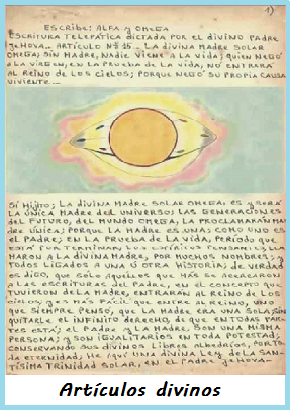 1)
ESCRIBE: ALFA y OMEGA
ESCRITURA TELEPÁTICA DICTADA POR EL DIVINO PADRE
JEHOVA.- ARTÍCULO Nº 15.- LA DIVINA MADRE SOLAR
OMEGA; SIN MADRE, NADIE VIENE A LA VIDA; QUIEN NEGÓ
A LA VIRGEN, EN LA PRUEBA DE LA VIDA, NO ENTRARÁ
AL REINO DE LOS CIELOS; PORQUE NEGÓ SU PROPIA CAUSA
VIVIENTE.-
SÍ HIJITO; LA DIVINA MADRE SOLAR OMEGA, ES y SERÁ
LA ÚNICA MADRE DEL UNIVERSO; LAS GENERACIONES
DEL FUTURO, DEL MUNDO OMEGA, LA PROCLAMARÁN MA-
DRE ÚNICA; PORQUE LA MADRE ES UNA; COMO UNO ES
EL PADRE; EN LA PRUEBA DE LA VIDA, PERÍODO QUE
ESTÁ POR TERMINAR, LOS ESPÍRITUS PENSANTES, LLA-
MARON A LA DIVINA MADRE, POR MUCHOS NOMBRES; y
TODOS LIGADOS A UNA ú OTRA HISTORIA; DE VERDAD
OS DIGO, QUE SÓLO AQUELLOS QUE MÁS SE ACERCARON
A LAS ESCRITURAS DEL PADRE, EN EL CONCEPTO QUE
TUVIERON DE LA MADRE, ENTRARÁN AL REINO DE LOS
CIELOS; y ES MÁS FÁCIL QUE ENTRE AL REINO, UNO
QUE SIEMPRE PENSÓ, QUE LA MADRE ERA UNA SOLA; SIN
QUITARLE EL INFINITO DERECHO, DE QUE EN TODAS PAR-
TES ESTÁ; EL PADRE y LA MADRE, SON UNA MISMA
PERSONA; y SON IGUALITARIOS EN TODA POTESTAD;
CONSERVANDO SUS DIVINOS LIBRES ALBEDRÍOS, POR TO-
DA ETERNIDAD, HE AQUÍ UNA DIVINA LEY, DE LA SAN-
TÍSIMA TRINIDAD SOLAR, EN EL PADRE JEHOVA-
Artículos divinos